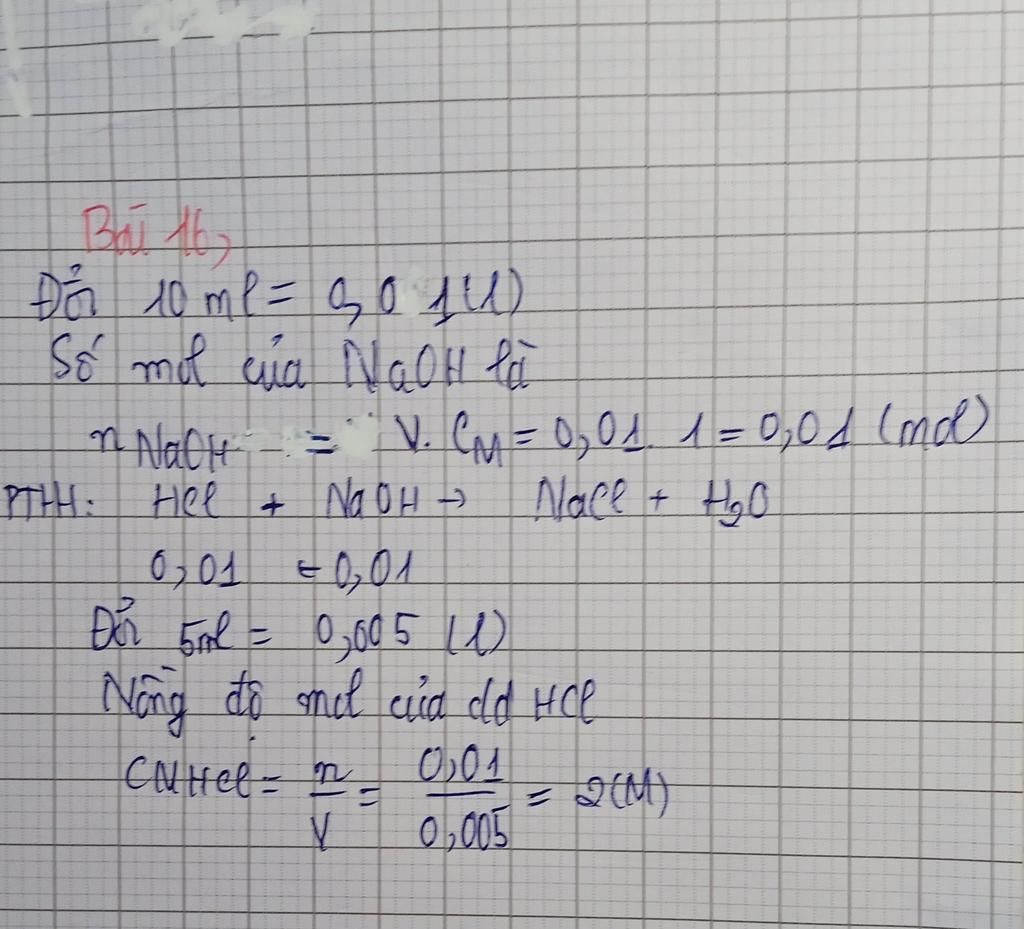 Bài 16,
Đổi 10 ml = 0,01 (l)
Số mol của NaOH là
n NaOH = V. CM = 0,01. 1 = 0,01 (mol)
PTHH: HCl + NaOH → NaCl + H2O
0,01 ← 0,01
Đổi 5ml = 0,005 (l)
Nồng độ mol của dd HCl
CM HCl = n/V = 0,01/0,005 = 2(M)